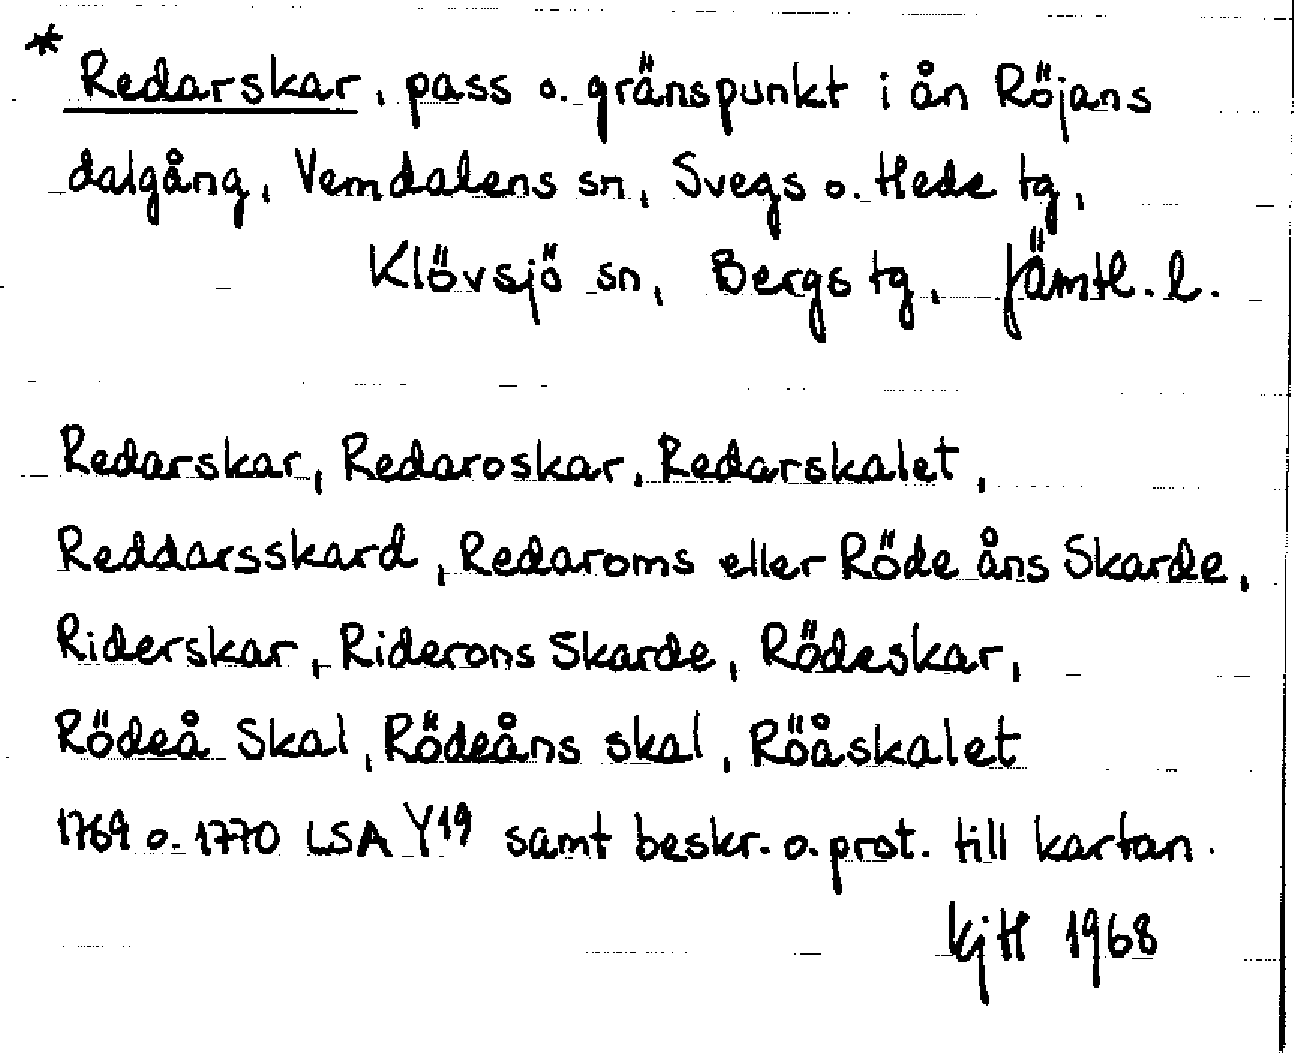 * Redarskar, pass o. gränspunkt i ån Röjans
dalgång, Vemdalens sn, Svegs o. Hede tg,
Klövsjö sn, Bergs tg, Jämtl. l.
Redarskar, Redaroskar, Redarskalet,
Reddarsskard, Redaroms eller Röde åns Skarde,
Riderskar, Riderons Skarde, Rödeskar,
Rödeå Skal, Rödeåns skal, Röåskalet
1769 o. 1770 LSA Y19 samt beskr. o. prot. till kartan.
KjH 1968